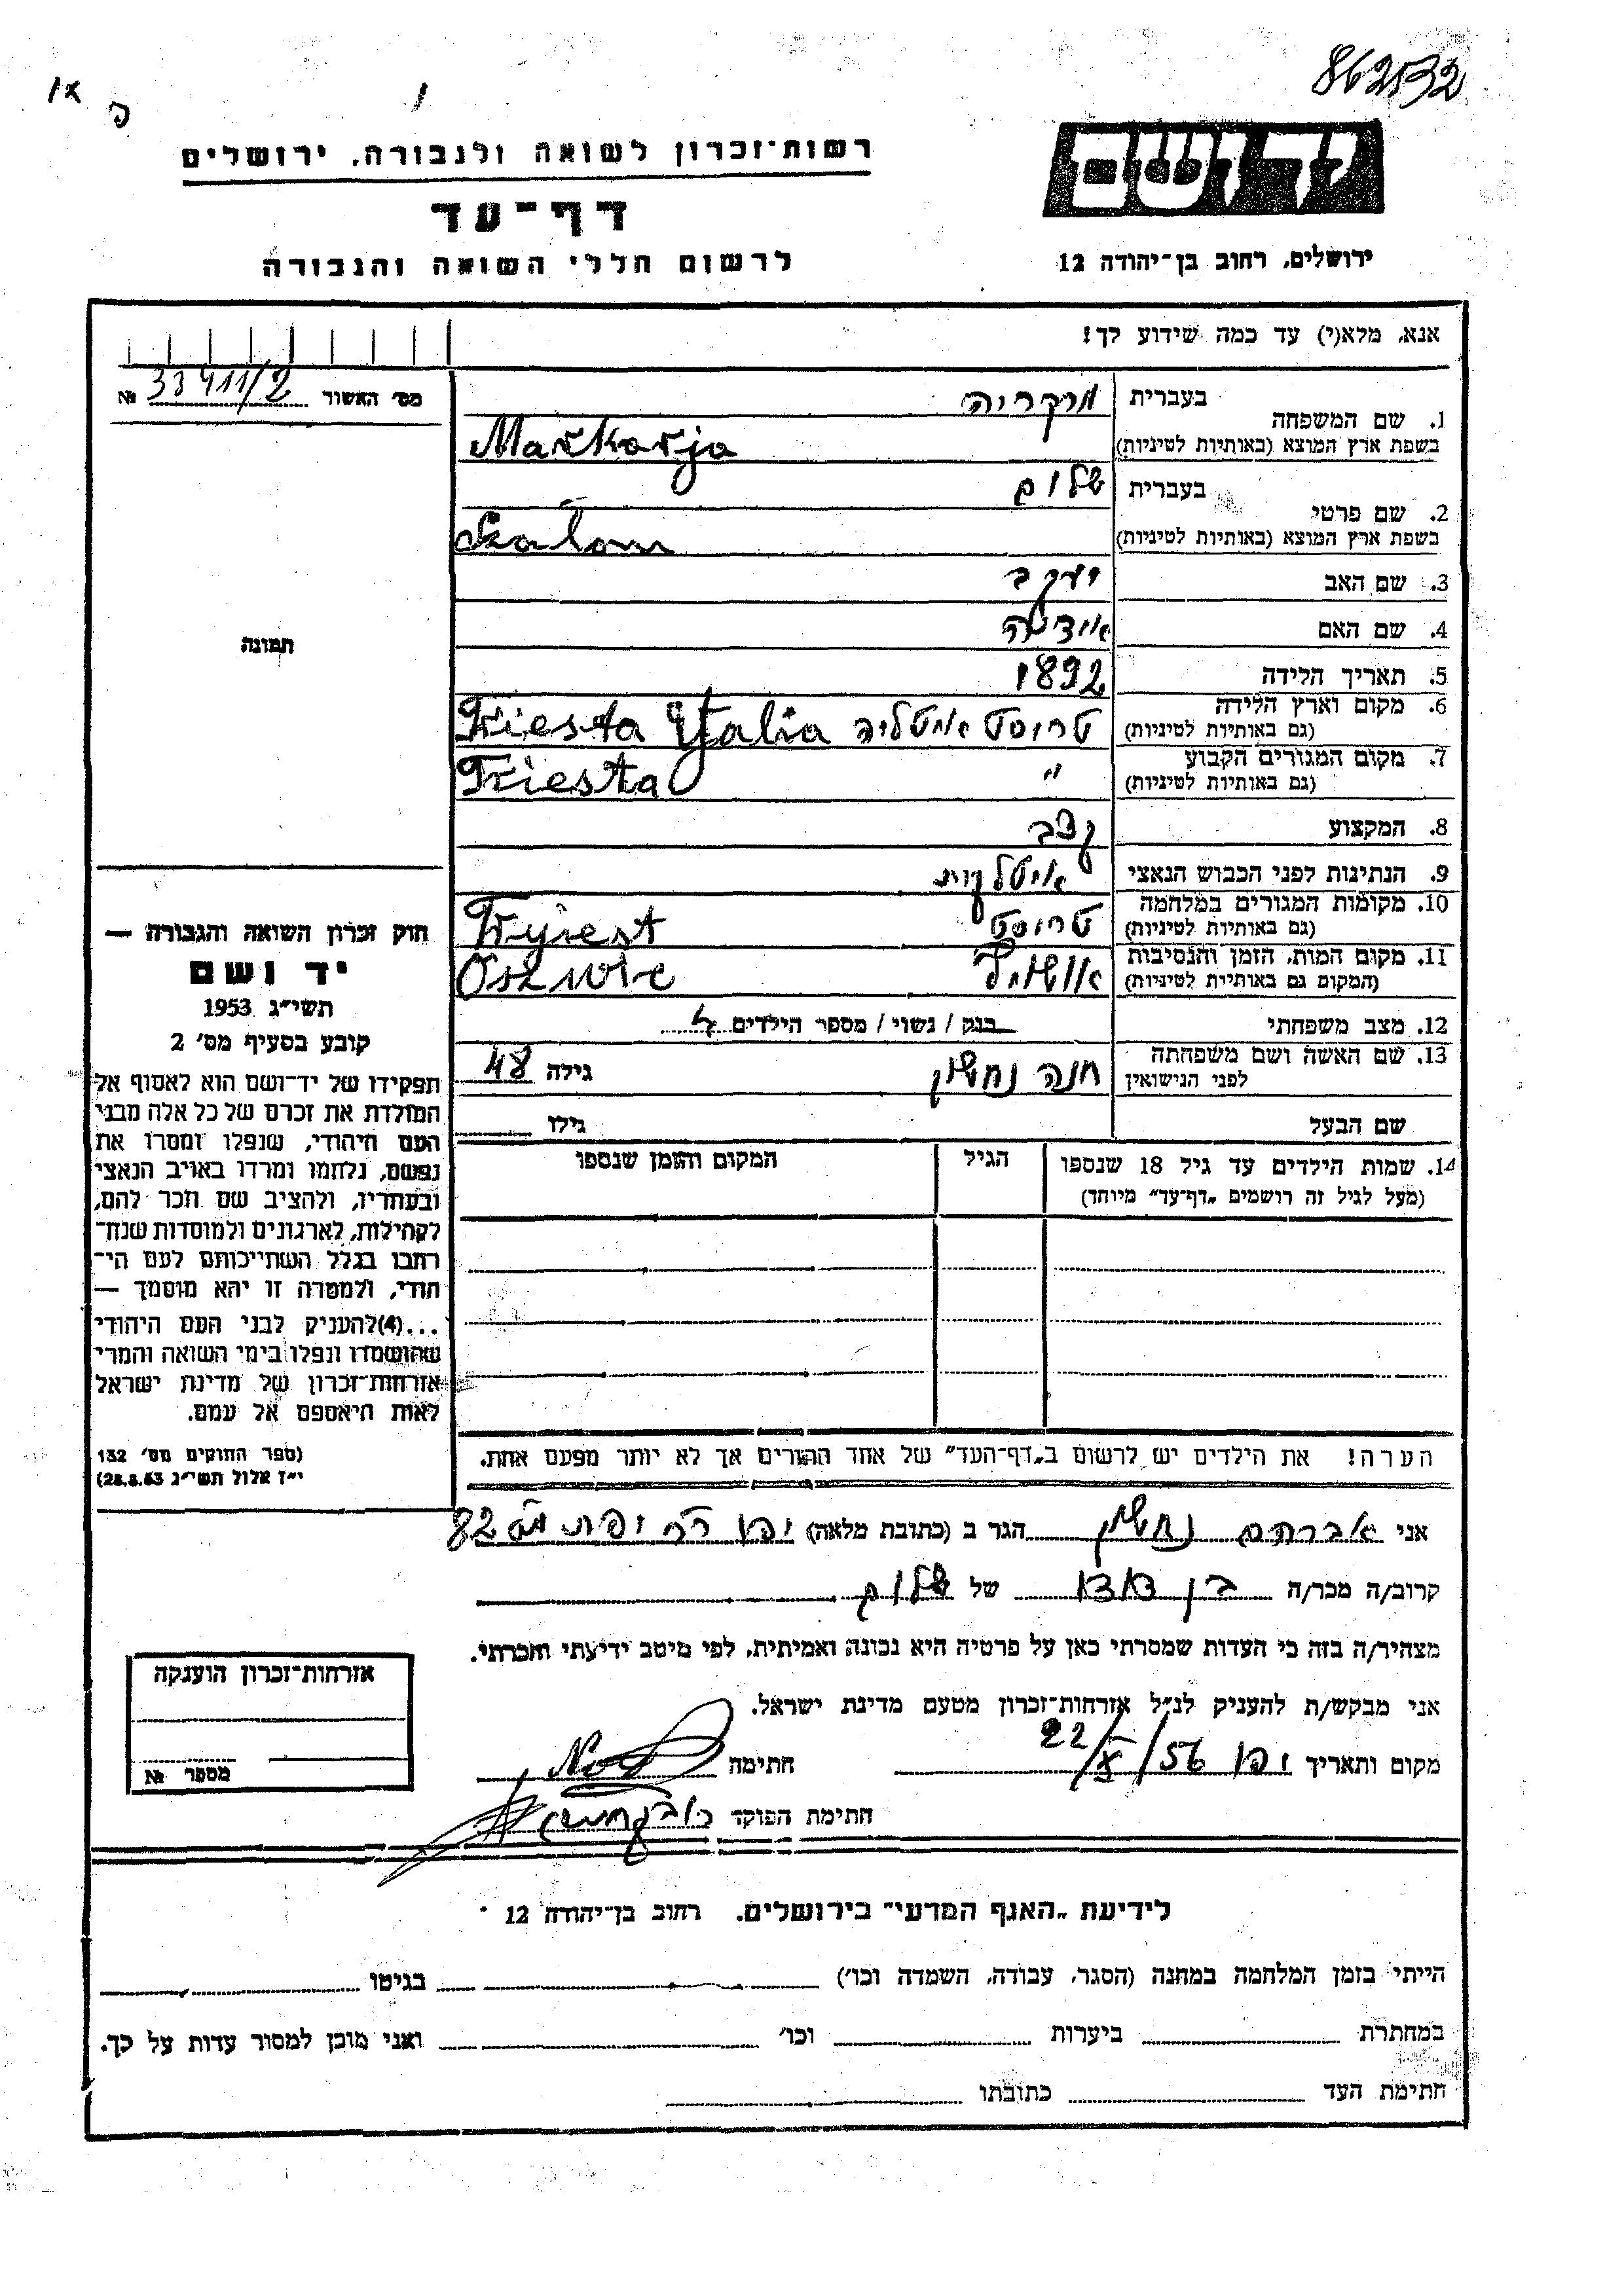 862532
רשות־זכרון לשואה ולגבורה, ירושלים
דף־עד
לרשום חללי השואה והגבורה
ירושלים, רחוב בן־יהודה 12
אנא, מלא(י) עד כמה שידוע לך!
מס׳ האשור 33411/2 №
1. שם המשפחה בעברית מרקריה
בשפת ארץ המוצא (באותיות לטיניות) Markarja
2. שם פרטי בעברית שלום
בשפת ארץ המוצא (באותיות לטיניות) Szalom
3. שם האב יעקב
4. שם האם
5. תאריך הלידה 1892
6. מקום וארץ הלידה טריסט איטליה Triesta Ytalia
(גם באותיות לטיניות)
7. מקום המגורים הקבוע " Triesta
(גם באותיות לטיניות)
8. המקצוע קצב
9. הנתינות לפני הכבוש הנאצי איטלקית
10. מקומות המגורים במלחמה טריסט Tryiest
(גם באותיות לטיניות)
11. מקום המות, הזמן והנסיבות
(המקום גם באותיות לטיניות)
12. מצב משפחתי רווק / נשוי / מספר הילדים
13. שם האשה ושם משפחתה חנה נחשון גילה 48
לפני הנישואין
שם הבעל גילו
14. שמות הילדים עד גיל 18 שנספו הגיל המקום והזמן שנספו
(מעל לגיל זה רושמים „דף־עד" מיוחד)
הערה! את הילדים יש לרשום ב„דף־העד" של אחד ההורים אך לא יותר מפעם אחת.
תמונה
חוק זכרון השואה והגבורה —
יד ושם
תשי״ג 1953
קובע בסעיף מס׳ 2
תפקידו של יד־ושם הוא לאסוף אל
המולדת את זכרם של כל אלה מבני
העם היהודי, שנפלו ומסרו את
נפשם, נלחמו ומרדו באויב הנאצי
ובעוזריו, ולהציב שם וזכר להם,
לקהילות, לארגונים ולמוסדות שנח־
רבו בגלל השתייכותם לעם הי־
הודי, ולמטרה זו יהא מוסמך —
...(4)להעניק לבני העם היהודי
שהושמדו ונפלו בימי השואה והמרי
אזרחות־זכרון של מדינת ישראל
לאות היאספם אל עמם.
(ספר החוקים מס׳ 132
י״ז אלול תשי״ג 28.8.53)
אני אברהם נחשון הגר ב (כתובת מלאה) יפו 82
קרוב/ה מכר/ה בן דוד של שלום
מצהיר/ה בזה כי העדות שמסרתי כאן על פרטיה היא נכונה ואמיתית, לפי מיטב ידיעתי והכרתי.
אני מבקש/ת להעניק לנ״ל אזרחות־זכרון מטעם מדינת ישראל.
מקום ותאריך יפו 22/X/56 חתימה
חתימת הפוקד
אזרחות־זכרון הוענקה
מספר №
לידיעת „האגף המדעי" בירושלים, רחוב בן־יהודה 12
הייתי בזמן המלחמה במחנה (הסגר, עבודה, השמדה וכו׳) בגיטו
במחתרת ביערות וכו׳ ואני מוכן למסור עדות על כך.
חתימת העד כתובתו